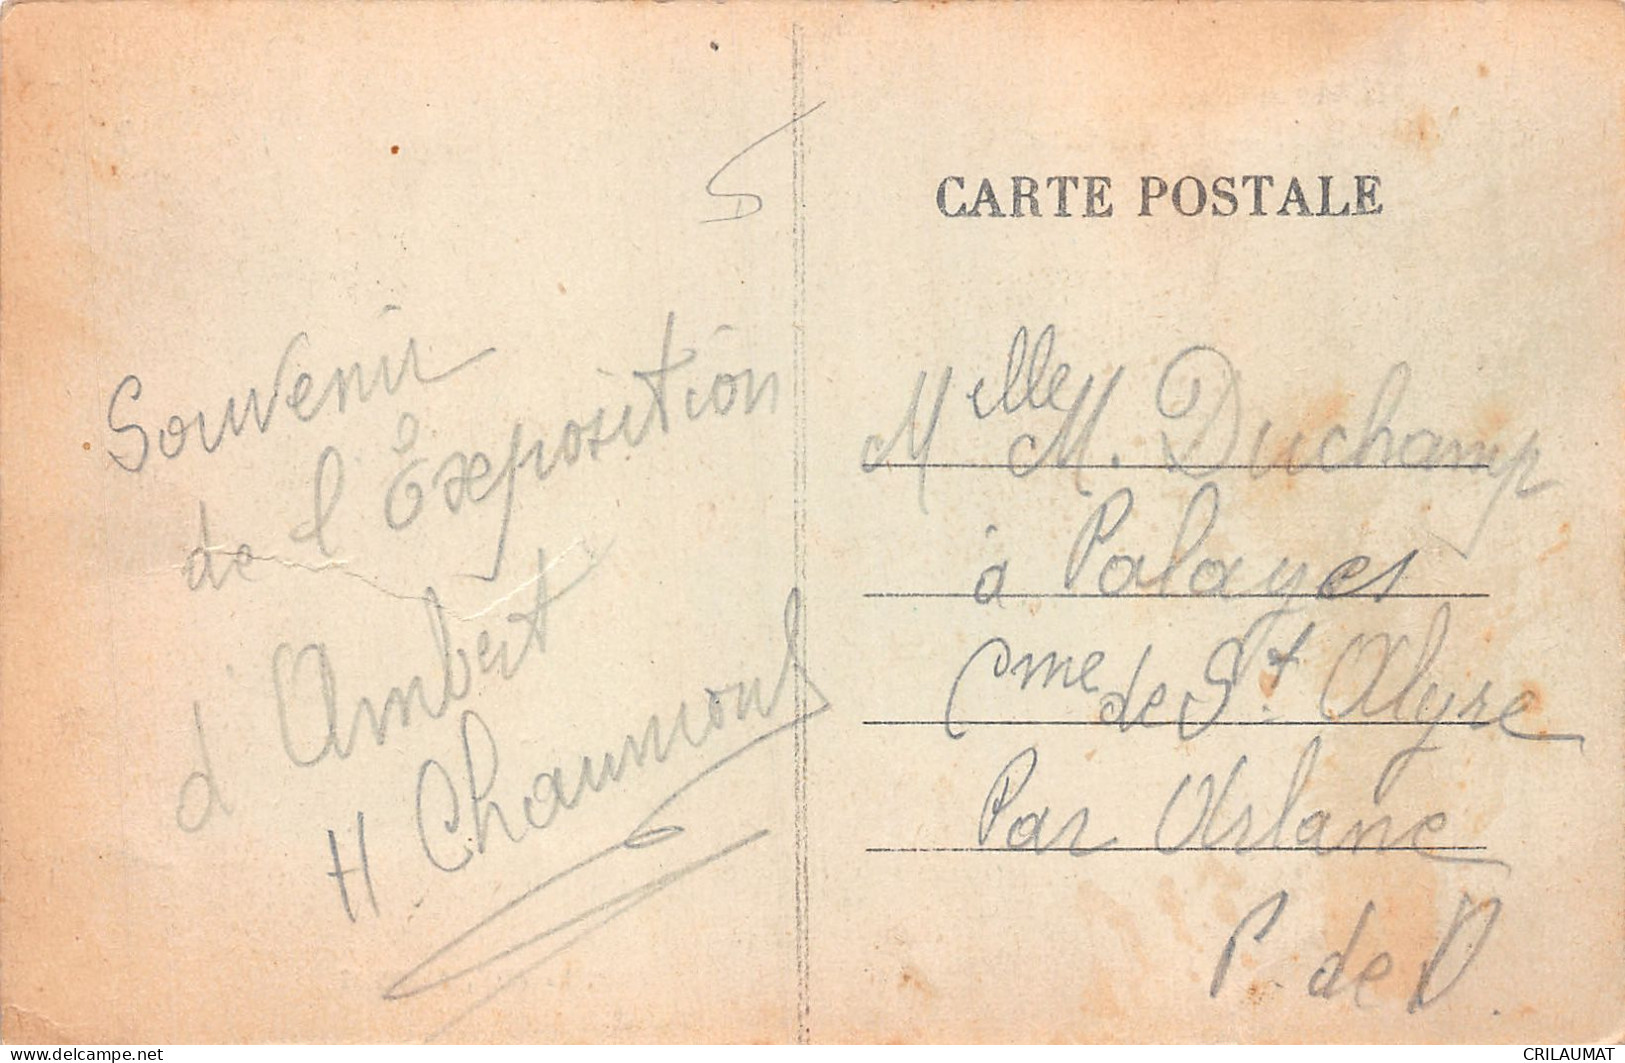 5
Souvenir
de l'Exposition
d'Ambert
H Chaumont
CARTE POSTALE
Melle M. Duchamp
à Palayes
Cme de St. Alyre
Par Arlanc
P. de D.
delcampe.net
CRILAUMAT